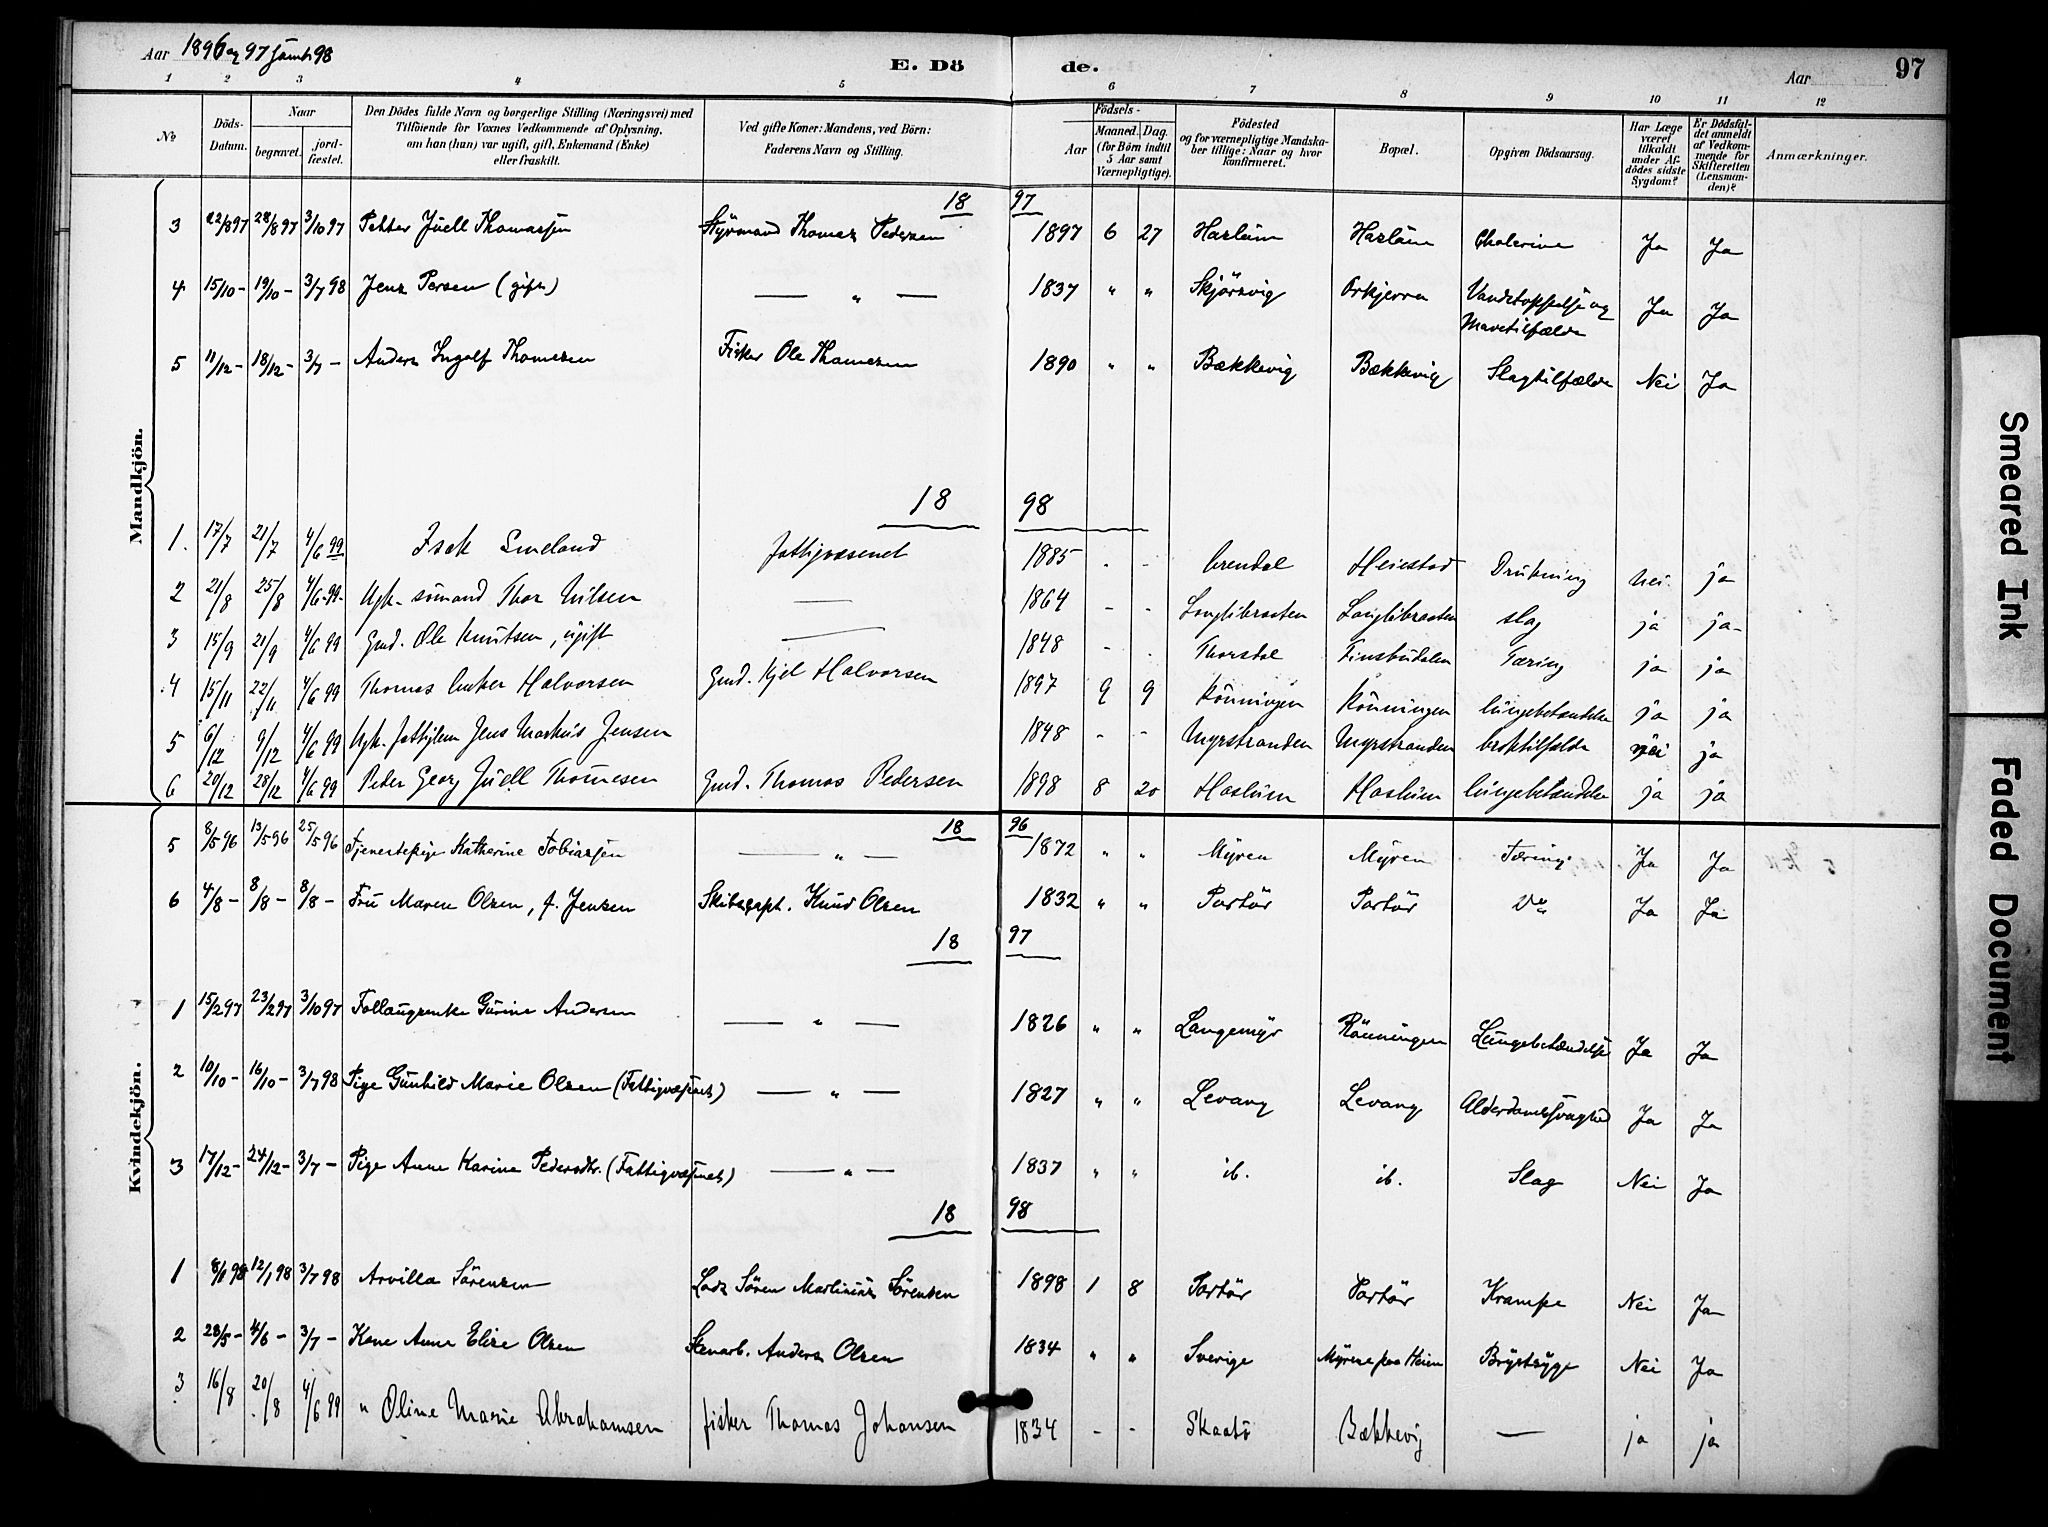 Aar 1896 og 97 samt 98
E. Döde.
Aar 97
1 2 3 4 5 6 7 8 9 10 11 12
No
Döds-Datum.
Naar
begravet.
jord-fæstet.
Den Dödes fulde Navn og borgerlige Stilling (Næringsvei) med Tilföiende for Voxnes Vedkommende af Oplysning, om han (han) var ugift, gift, Enkemand (Enke) eller fraskilt.
Ved gifte Koner: Mandens, ved Börn: Faderens Navn og Stilling.
Födsels-
Aar
Maaned. Dag.
(for Börn indtil 5 Aar samt Værnepligtige).
Födested og for værnepligtige Mandskaber tillige: Naar og hvor konfirmeret.
Bopæl.
Opgiven Dödsaarsag.
Har Læge været tilkaldt under Afdödes sidste Sygdom?
Er Dödsfaldet anmeldt af Vedkommende for Skifteretten (Lensmanden)?
Anmærkninger.
Mandkjön.
18 97
3 22/8 97 28/8 97 3/10 97 Petter Juell Thomassen Styrmand Thomas Pedersen 1897 6 27 Haslum Haslum Cholerine Ja Ja
4 15/10 - 19/10 - 3/7 98 Jens Persen (gift) — " — 1837 " " Skjörsvig Vandstoppelse og Mavetilfælde Ja Ja
5 11/12 - 18/12 - 3/7 - Anders Ingolf Thomesen Fisker Ole Thomesen 1890 " " Bækkevig Bækkevig Slagtilfælde Nei Ja
18 98
1. 17/7 21/7 4/6 99 Isak Smeland fattigvæsenet 1885 - - Arendal Heiestad Drukning nei ja
2 21/8 25/8 4/6 -99- Ugk. sömand Thor Nilsen — 1864 - - Langlibraaten Langlibraaten slag ja ja-
3 15/9 21/9 4/6 99 Gmd. Ole Knutsen, ugift — 1848 - - Thorsdal Finsbudalen Tæring ja ja
4 15/11 22/11 4/6 99 Thomas Anker Halvorsen Gmd. Kjel Halvorsen 1897 9 9 Rönningen Rönningen lungebetændelse ja ja
5 6/12 9/12 4/6 99 Ugk. fattiglem Jens Markus Jensen 1848 - - Myrstranden Myrstranden broktilfælde nei ja
6 20/12 28/12 4/6 99 Peter Georg Juell Thomesen Gmd. Thomas Pedersen 1898 8 20 Haslum Haslum lungebetændelse ja ja
Kvindekjön.
18 96
5 8/5 96 13/5 96 25/5 96 Tjenestepige Katherine Tobiassen — " — 1872 " " Myren Myren Tæring Ja Ja
6 4/8 - 8/8 - 8/8 - Fru Maren Olsen, f. Jensen Skibscapt. Knud Olsen 1832 " " Portör Portör Do Ja Ja
18 97
1 15/2 97 23/2 97 3/10 97 Gurine Andersen — " — 1826 " " Langemyr Rönningen Lungebetændelse Ja Ja
2 10/10 - 16/10 - 3/7 98 Pige Gunhild Marie Olsen (Fattigvæsenet) — " — 1827 " " Levang Levang Alderdomssvaghed Ja Ja
3 17/12 - 24/12 - 3/7 - Pige Anne Karine Pedersdtr. (Fattigvæsenet) — " — 1837 " " ib. ib. Slag Nei Ja
18 98
1 8/1 98 12/1 98 3/7 98 Arvilla Sörensen Lods Sören Martinius Sörensen 1898 1 8 Portör Portör Krampe Nei Ja
2 28/5 - 4/6 - 3/7 - Kone Anne Elise Olsen Stenarb. Anders Olsen 1834 " " Sverige Myrene paa Heien Brystsyge Nei Ja
3 16/8 20/8 4/6 99 " Oline Marie Abrahamsen fisker Thomas Johansen 1834 - - Skaatö Bækkevig — ja ja
Smeared Ink
Faded Document